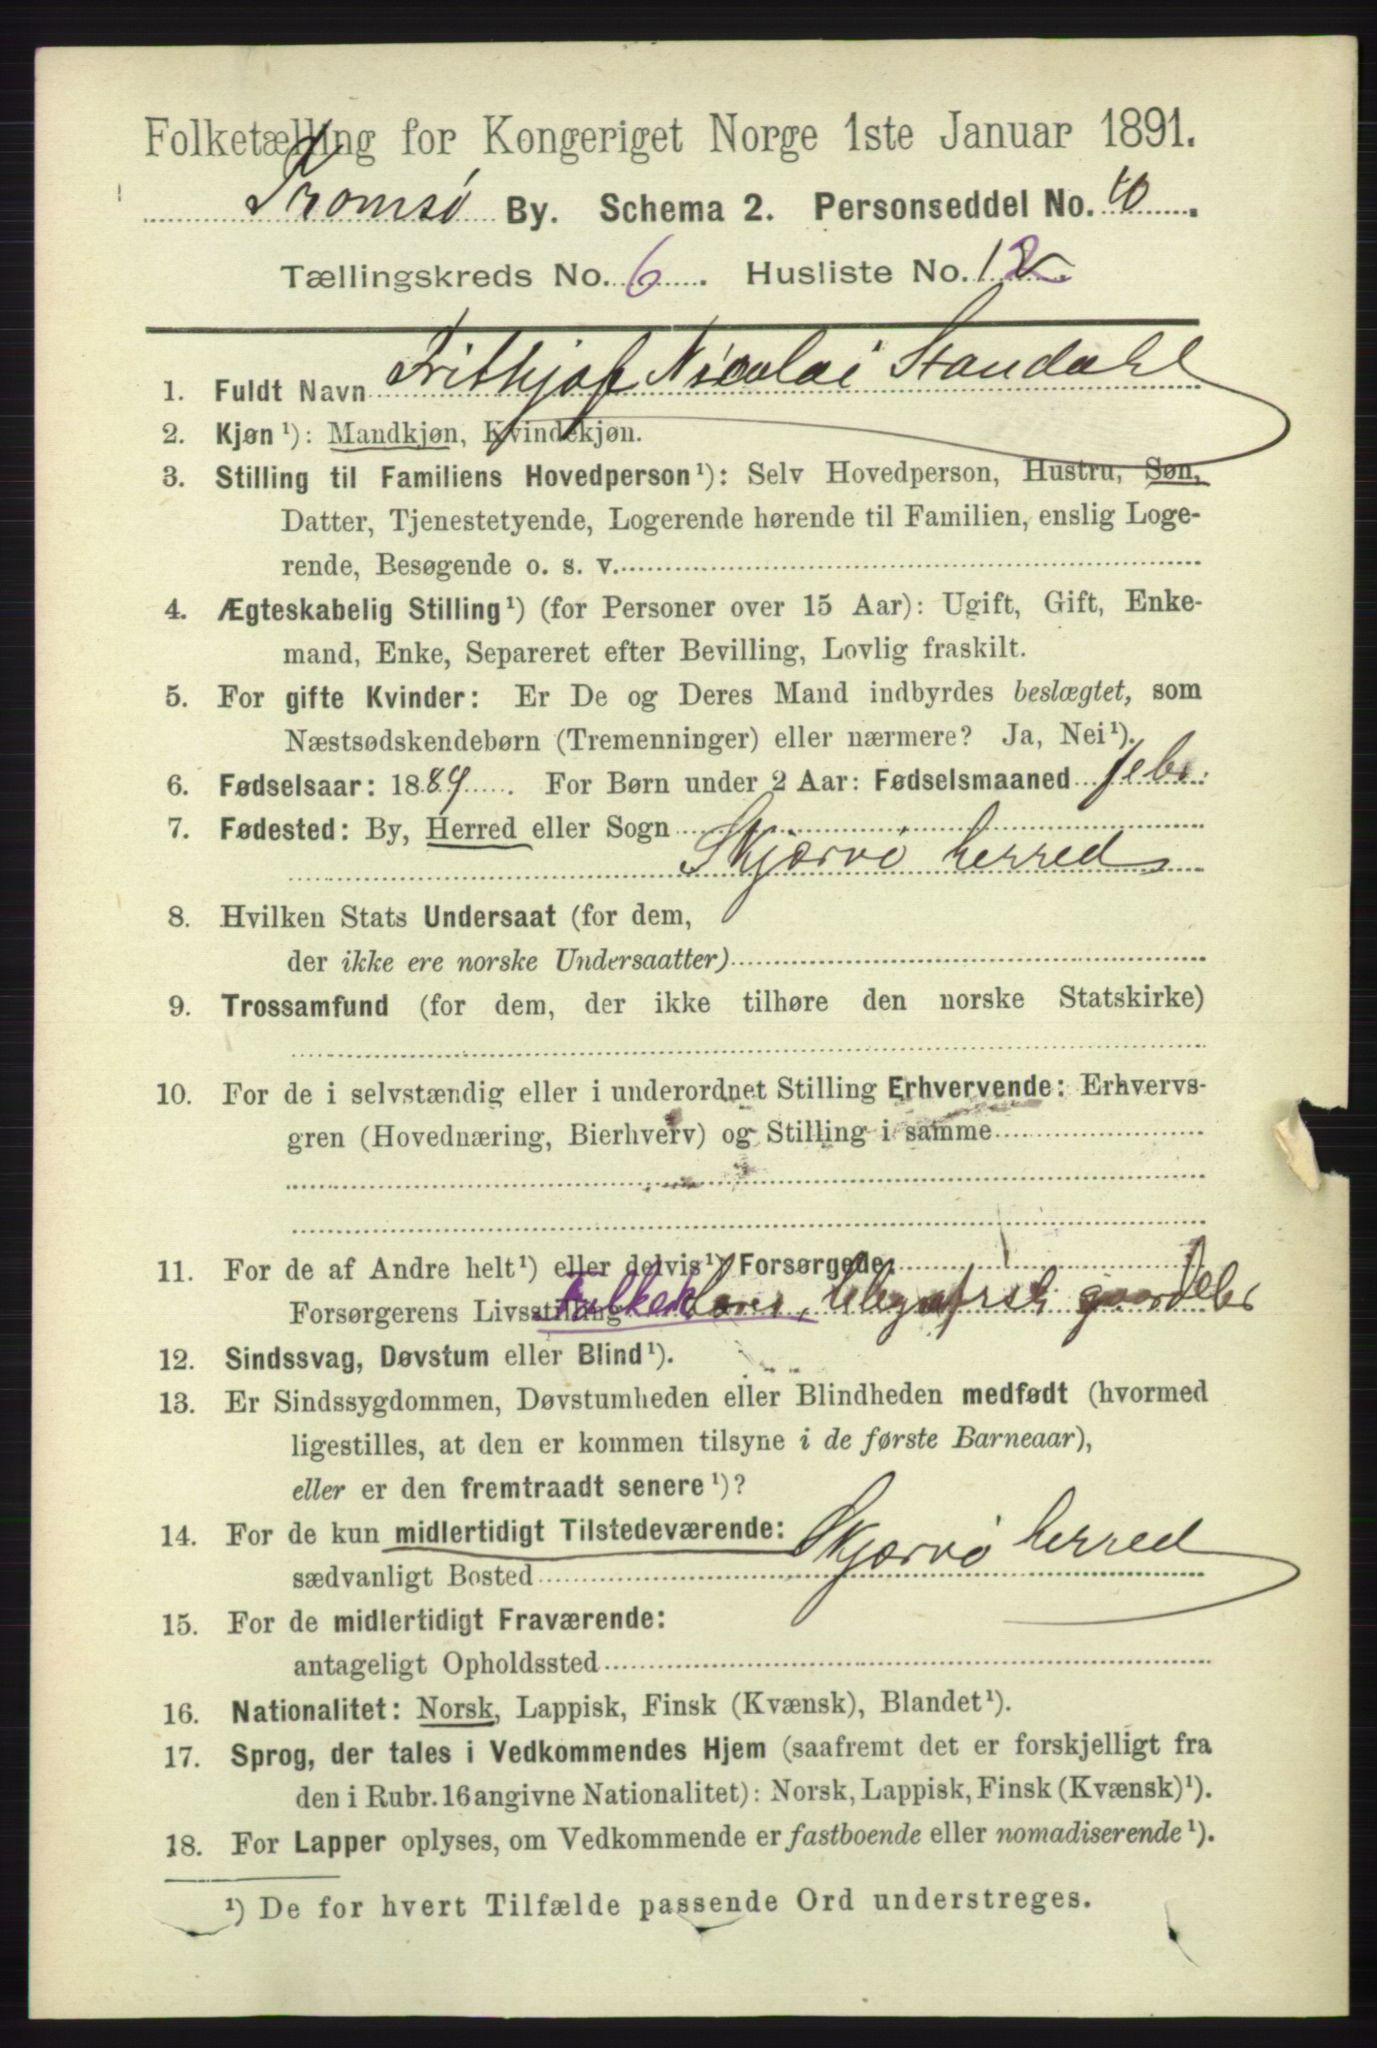 Folketælling for Kongeriget Norge 1ste Januar 1891.
Tromsø By. Schema 2. Personseddel No. 10.
Tællingskreds No. 6. Husliste No. 12.
1. Fuldt Navn Frithjof Nicolai Standahl
2. Kjøn¹): Mandkjøn, Kvindekjøn.
3. Stilling til Familiens Hovedperson¹): Selv Hovedperson, Hustru, Søn,
Datter, Tjenestetyende, Logerende hørende til Familien, enslig Loge-
rende, Besøgende o. s. v.
4. Ægteskabelig Stilling¹) (for Personer over 15 Aar): Ugift, Gift, Enke-
mand, Enke, Separeret efter Bevilling, Lovlig fraskilt.
5. For gifte Kvinder: Er De og Deres Mand indbyrdes beslægtet, som
Næstsødskendebørn (Tremenninger) eller nærmere? Ja, Nei¹).
6. Fødselsaar: 1889. For Børn under 2 Aar: Fødselsmaaned febr.
7. Fødested: By, Herred eller Sogn
Skjervø herred
8. Hvilken Stats Undersaat (for dem,
der ikke ere norske Undersaatter)
9. Trossamfund (for dem, der ikke tilhøre den norske Statskirke)
10. For de i selvstændig eller i underordnet Stilling Erhvervende: Erhvervs-
gren (Hovednæring, Bierhverv) og Stilling i samme
11. For de af Andre helt¹) eller delvis¹) Forsørgede:
Forsørgerens Livsstilling
12. Sindssvag, Døvstum eller Blind¹).
13. Er Sindssygdommen, Døvstumheden eller Blindheden medfødt (hvormed
ligestilles, at den er kommen tilsyne i de første Barneaar),
eller er den fremtraadt senere¹)?
14. For de kun midlertidigt Tilstedeværende:
sædvanligt Bosted Skjervø herred
15. For de midlertidigt Fraværende:
antageligt Opholdssted
16. Nationalitet: Norsk, Lappisk, Finsk (Kvænsk), Blandet¹).
17. Sprog, der tales i Vedkommendes Hjem (saafremt det er forskjelligt fra
den i Rubr. 16 angivne Nationalitet): Norsk, Lappisk, Finsk (Kvænsk)¹).
18. For Lapper oplyses, om Vedkommende er fastboende eller nomadiserende¹).
¹) De for hvert Tilfælde passende Ord understreges.